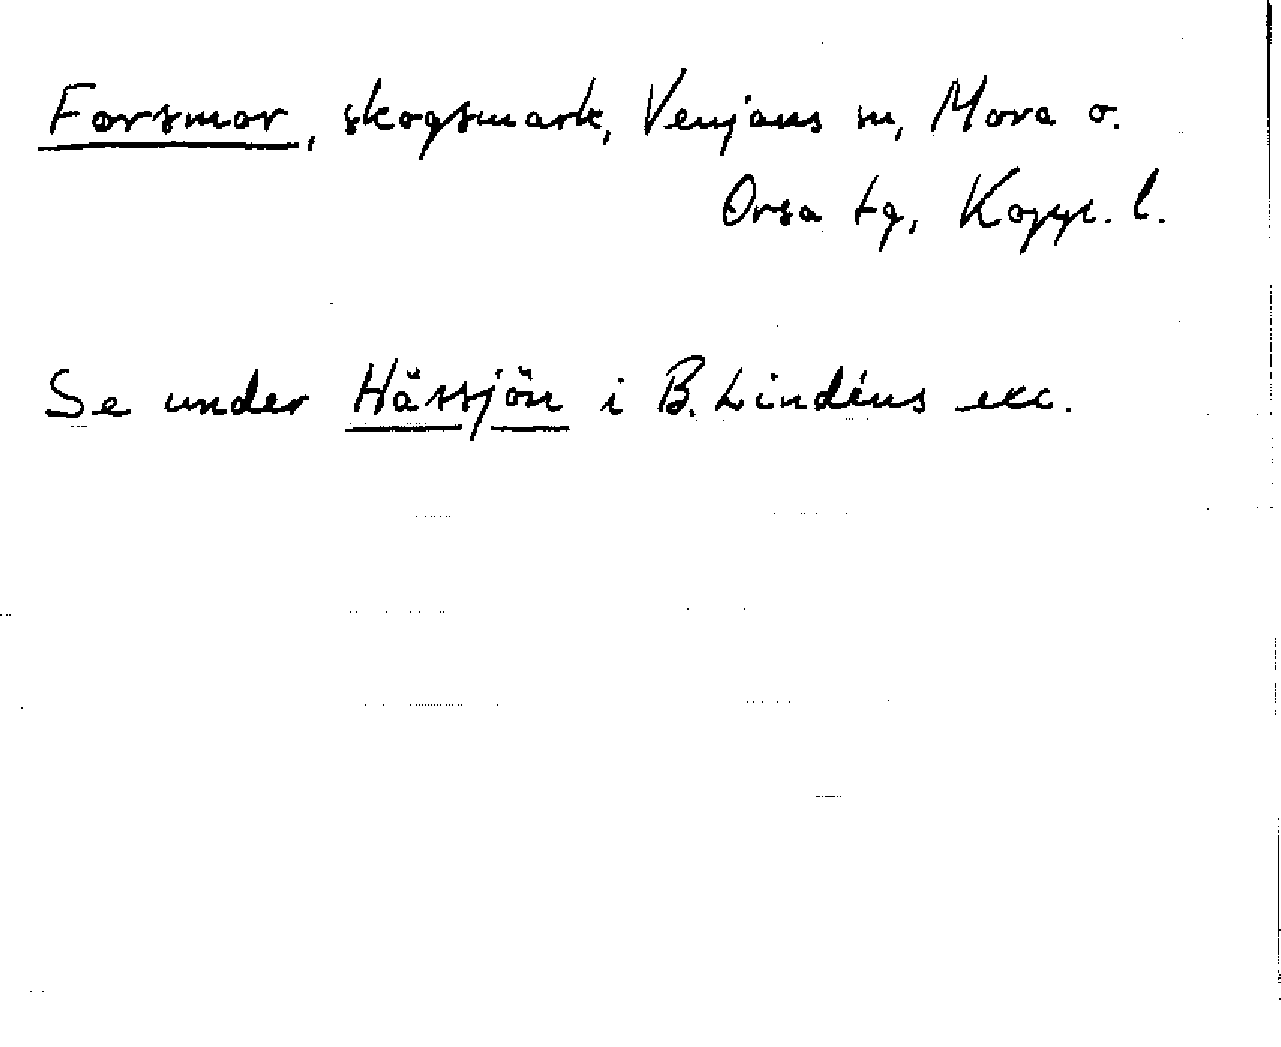 Forsmor, skogsmark, Venjans sn, Mora o.
Orsa tg, Kopp. l.
Se under Hässjön i B. Lindéns exc.